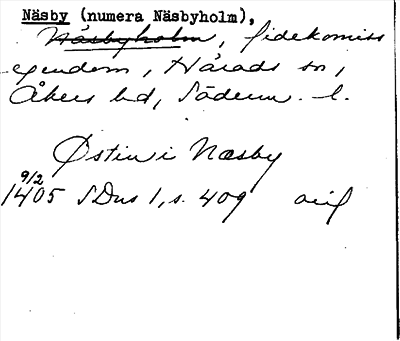 Näsby (numera Näsbyholm),
Näsbyholm, fidekomiss
egendom, Härads sn,
Åkers hd, Söderm. l.
Østin i Næsby
9/2
1405 SDns 1, s. 409 orig